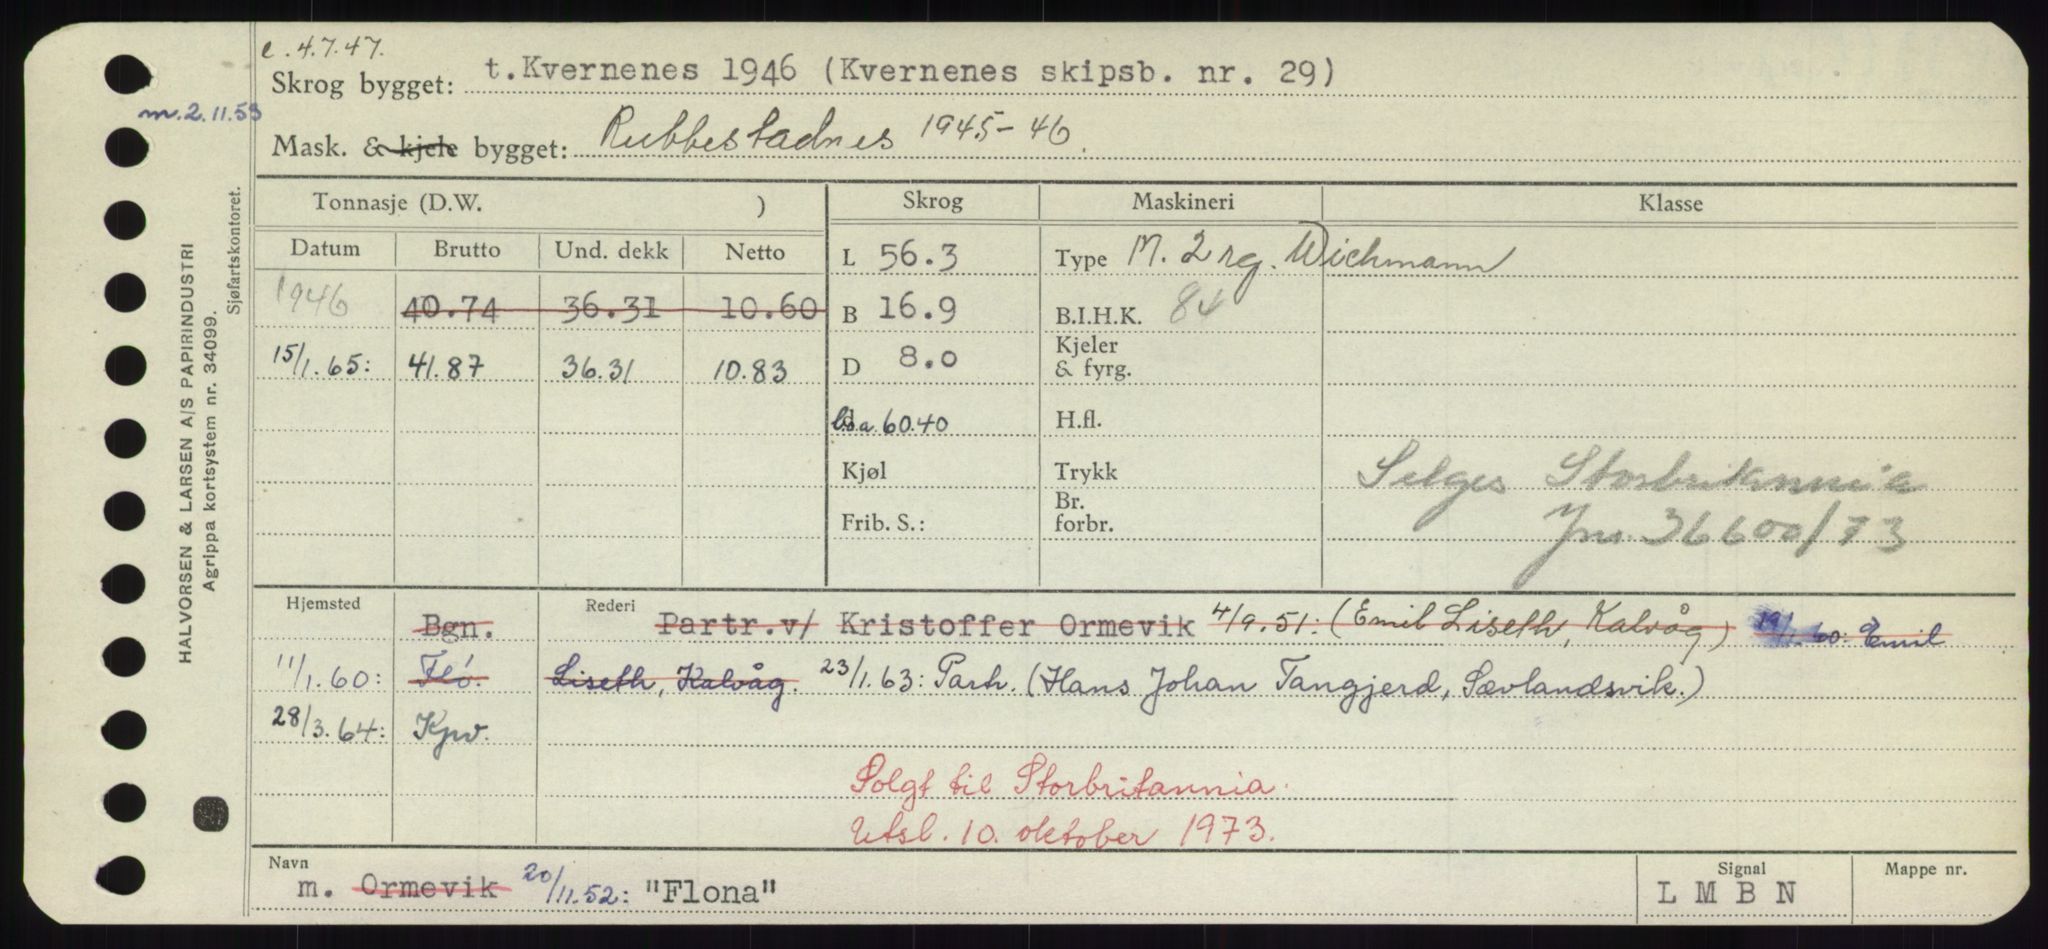 e. 4.7.47.
Skrog bygget: t. Kvernenes 1946 (Kvernenes skipsb. nr. 29)
m. 2.11.53
Mask. & kjele bygget: Rubbestadnes 1945-46.
HALVORSEN & LARSEN A/S PAPIRINDUSTRI
Agrippa kortsystem nr. 34099.
Sjøfartskontoret.
Tonnasje (D.W. ) Skrog Maskineri Klasse
Datum Brutto Und. dekk Netto L 56.3 Type M. 2 rg. Wichmann
1946 40.74 36.31 10.60 B 16.9 B.I.H.K. 84
15/1.65: 41.87 36.31 10.83 D 8.0 Kjeler & fyrg.
l.o.a. 60.40 H.fl.
Kjøl Trykk Selges Storbritannia
Frib. S.: Br. forbr. Jnr. 36600/73
Hjemsted Bgn. Rederi Partr. v/ Kristoffer Ormevik 4/9.51: (Emil Liseth, Kalvåg) 19/1.60: Emil
11/1.60: Flo. Liseth, Kalvåg. 23/1.63: Parh. (Hans Johan Tangjerd, Sævlandsvik.)
28/3.64: Kpv.
Solgt til Storbritannia.
Utsl. 10. oktober 1973.
Navn Signal Mappe nr.
m. Ormevik 20/11.52: "Flona" L M B N